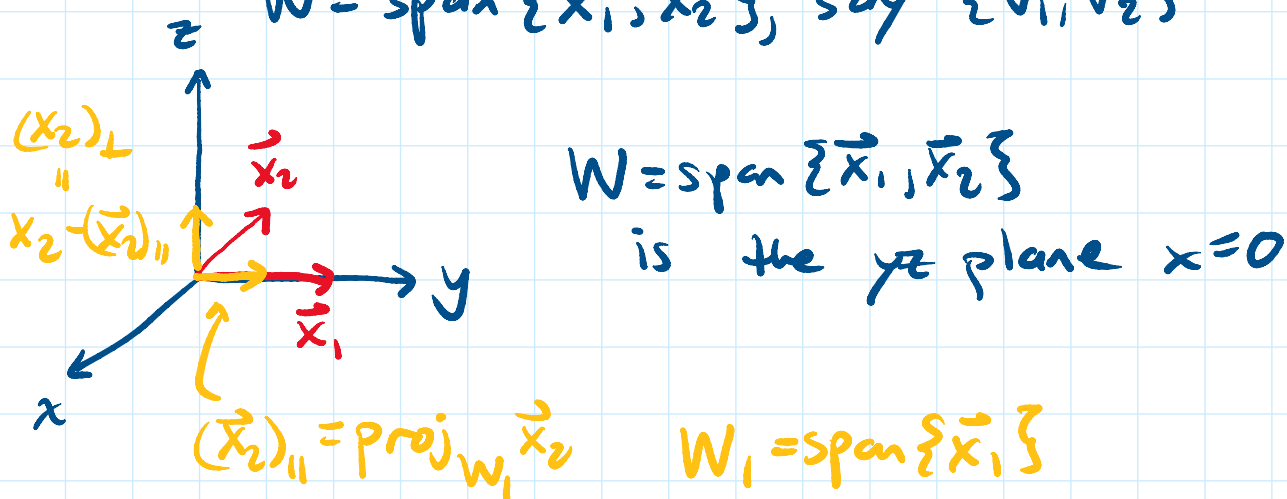 W = span {x₁, x₂}, say {v₁, v₂}
z
(x₂)⊥
=
x₂ - (x⃗₂)∥
x⃗₂
y
x⃗₁
x
W = span {x⃗₁, x⃗₂}
is the yz plane x=0
(x⃗₂)∥ = proj_W₁ x⃗₂
W₁ = span{x⃗₁}